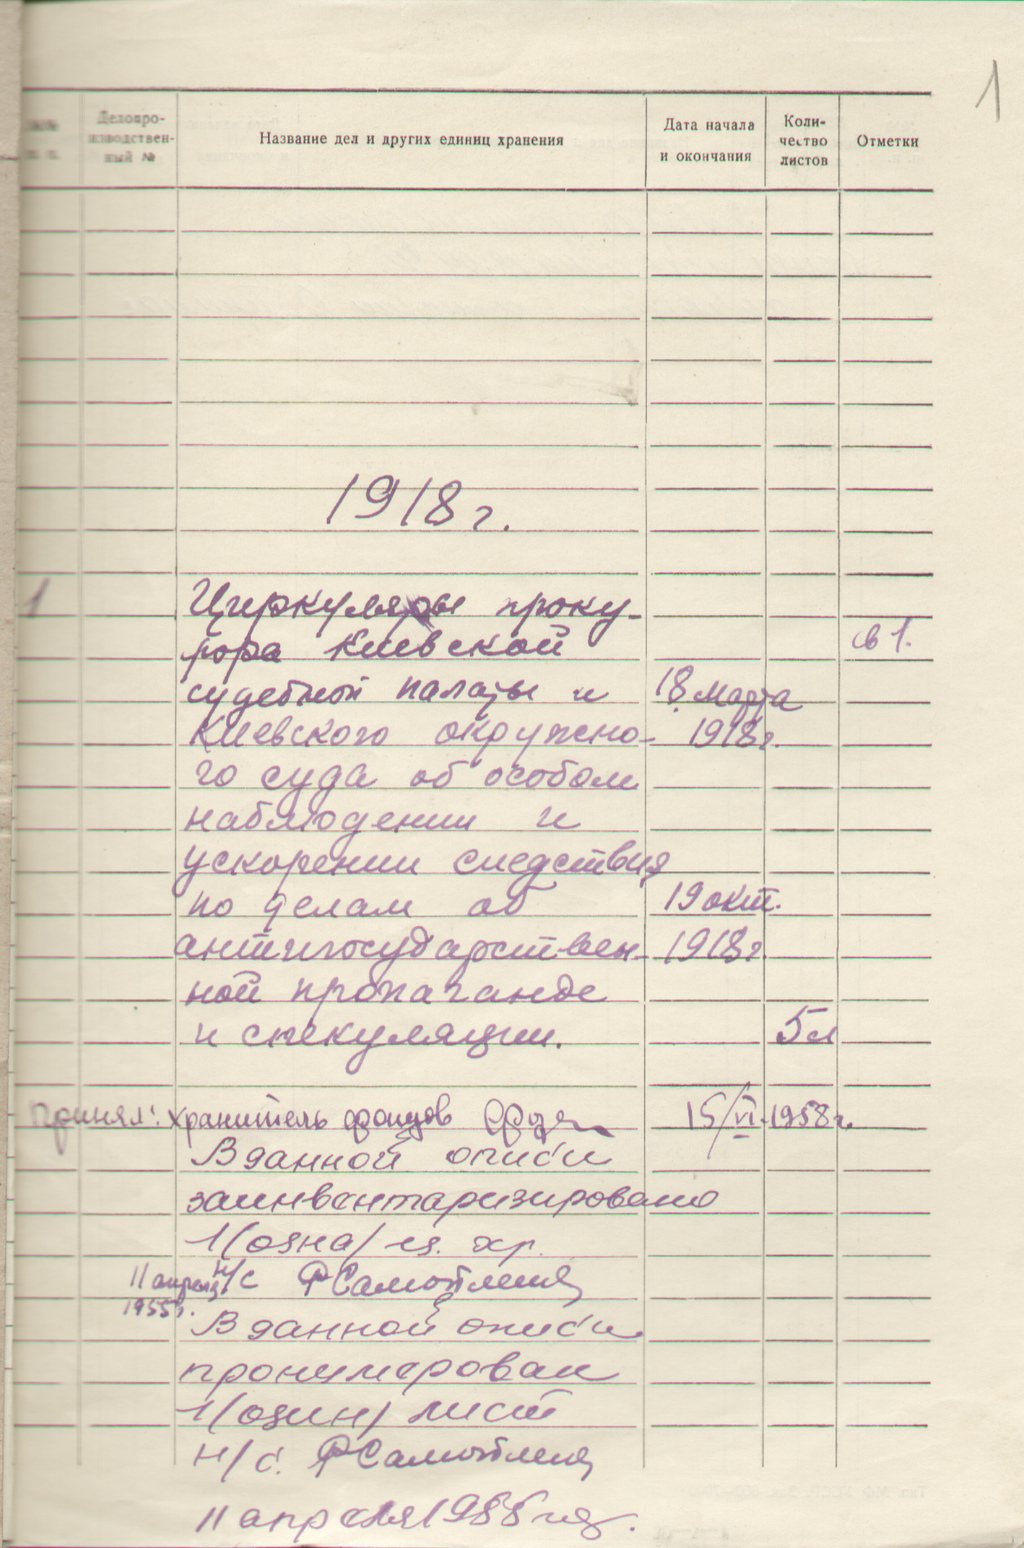 1
Делопро-
изводствен-
ный №
Название дел и других единиц хранения
Дата начала
и окончания
Коли-
чество
листов
Отметки
1918 г.
1 Циркуляры проку-
рора Киевской
оп 1.
судебной палаты и 18 марта
Киевского окружно- 1918 г.
го суда об особом
наблюдении и
ускорении следствия
по делам об 19 окт.
антигосударствен- 1918 г.
ной пропаганде
и спекуляции. 5 л
Принял: хранитель фондов 15/VI-1958 г.
В данной описи
заинвентаризировано
1 (одна) ед. хр.
11 апреля н/с Самойленко
1955 г.
В данной описи
пронумерован
1 (один) лист
н/с. Самойленко
11 апреля 1955 года.